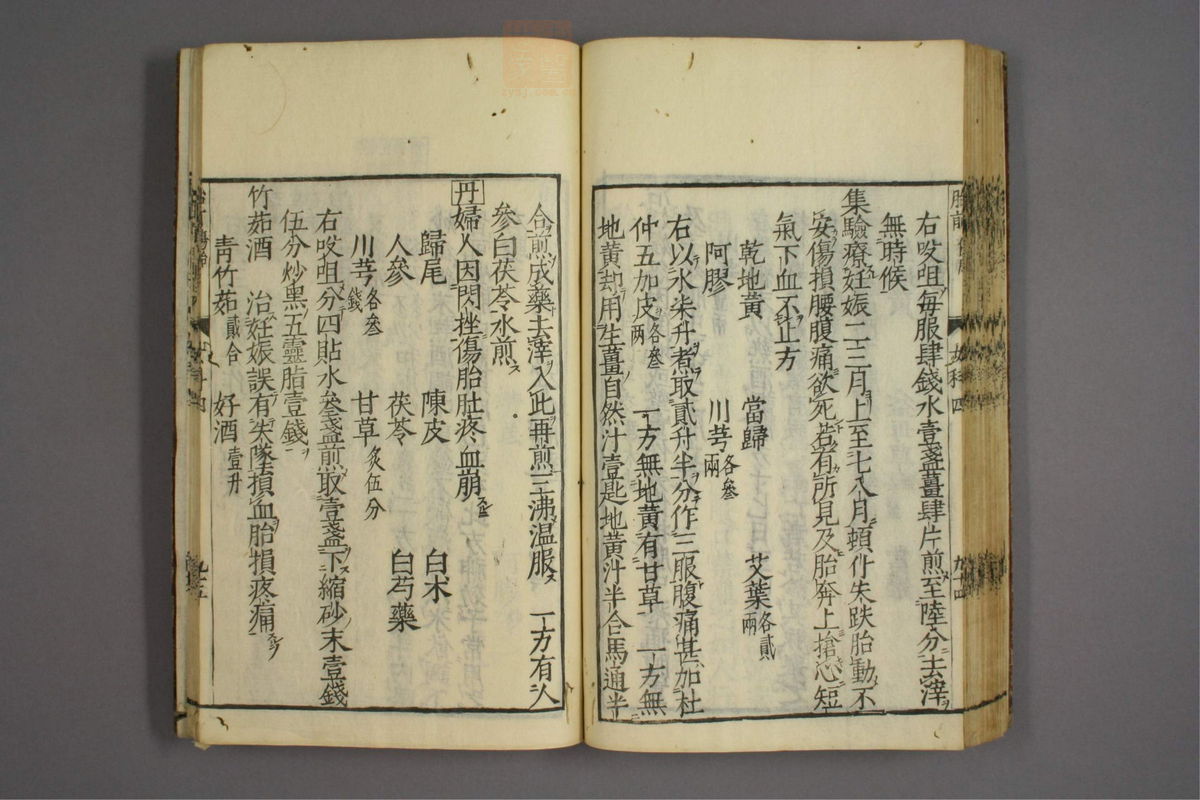 右㕮咀每服肆錢水壹盞薑肆片煎至陸分去滓
無時候
集驗療妊娠二三月上至七八月頓仆失跌胎動不
安傷損腰腹痛欲死若有所見及胎奔上搶心短
氣下血不止方
乾地黃 當歸 艾葉各貳兩
阿膠 川芎各參兩
右以水柒升煮取貳升半分作三服腹痛甚加杜
仲五加皮各參兩 一方無地黃有甘草 一方無
地黃却用生薑自然汁壹匙地黃汁半合馬通半
合煎成藥去滓入此再煎三沸温服 一方有人
參白茯苓水煎
丹婦人因閃挫傷胎肚疼血崩
歸尾 陳皮 白朮
人參 茯苓 白芍藥
川芎各參錢 甘草炙伍分
右㕮咀分四貼水參盞煎取壹盞下縮砂末壹錢
伍分炒黑五靈脂壹錢
竹茹酒 治妊娠誤有失墜損血胎損疼痛
靑竹茹貳合 好酒壹升
胎前
九十四
九十五